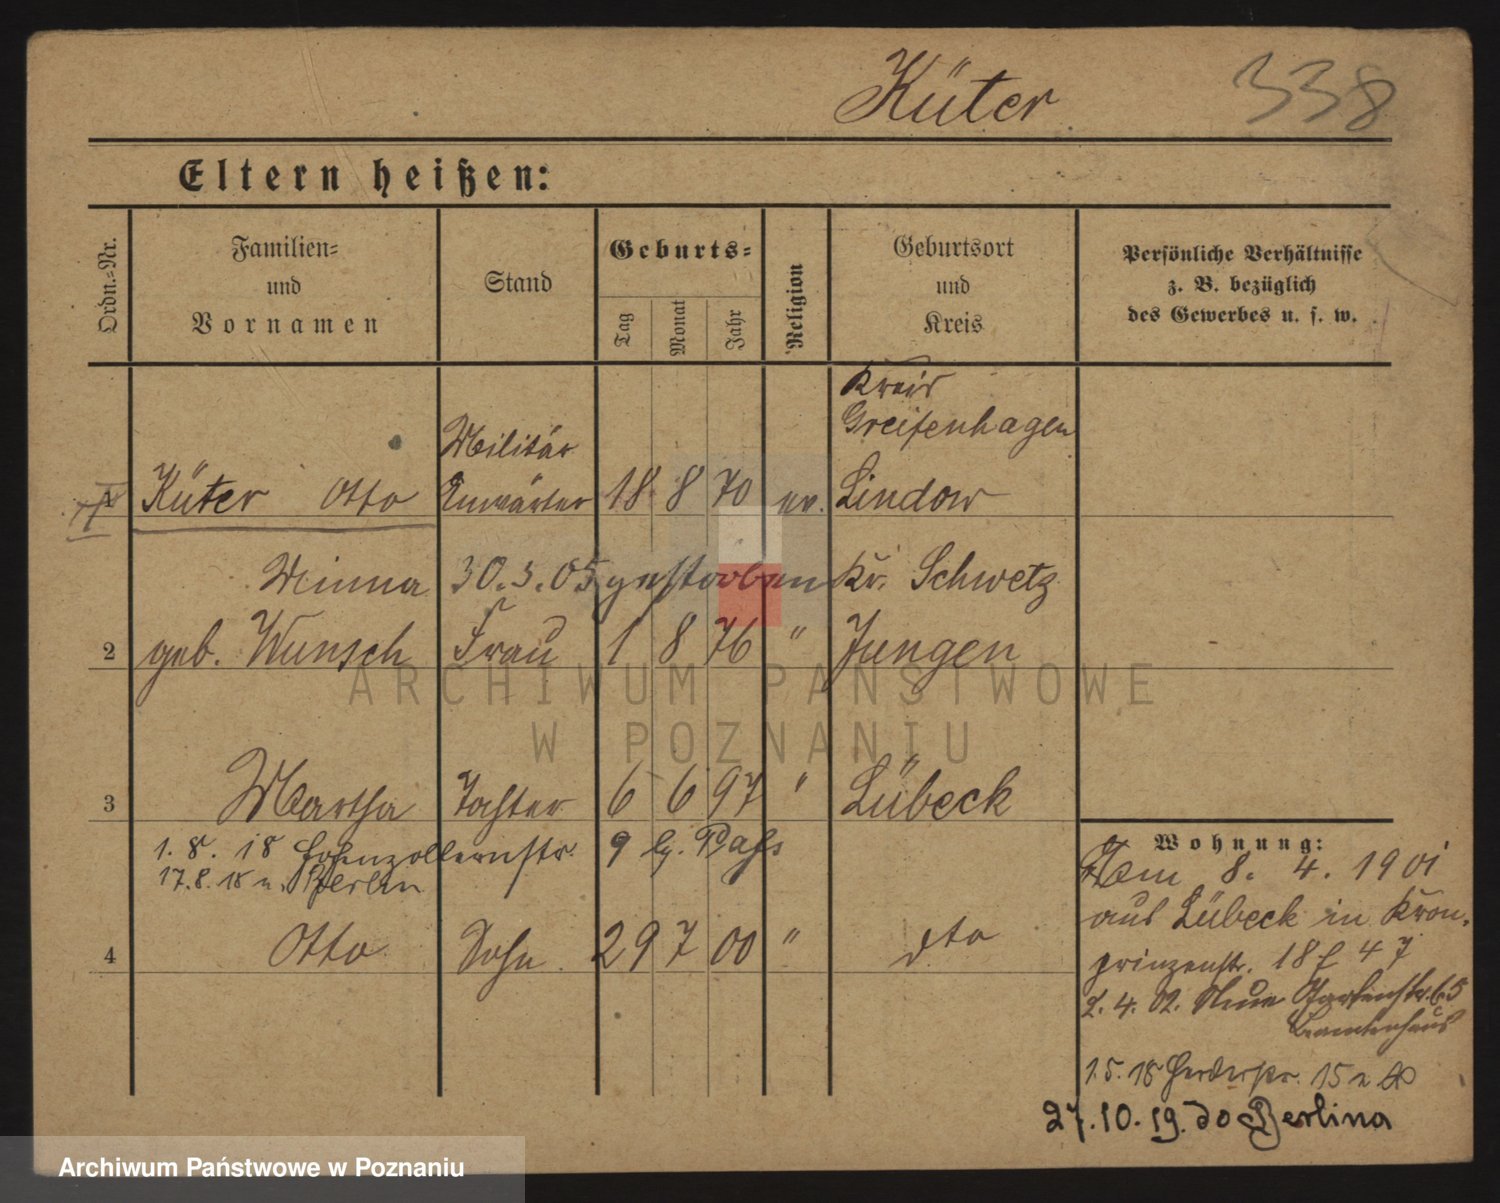 Küter 338
Eltern heißen:
Ordn.-Nr.
Familien-
und
Vornamen
Stand
Geburts-
Tag
Monat
Jahr
Religion
Geburtsort
und
Kreis
Persönliche Verhältnisse
z. B. bezüglich
des Gewerbes u. s. w.
Kreis
Greifenhagen
Militär
1 Küter Otto Anwärter 18 8 70 ev. Lindow
Minna 30.3.05 gestorben Kr. Schwetz
2 geb. Wunsch Frau 1 8 76 " Jungen
ARCHIWUM PAŃSTWOWE
W POZNANIU
3 Martha Tochter 6 6 97 " Lübeck
1.8.18 Hohenzollernstr. 9
17.8.18 n. Berlin
4 Otto Sohn 29 7 00 " dto
Wohnung:
Am 8. 4. 1901
aus Lübeck in Kron-
prinzenstr. 18
2.4.02. Neue Gartenstr. 65
Beamtenhaus
1.5.18 15
27.10.19. do Berlina
Archiwum Państwowe w Poznaniu